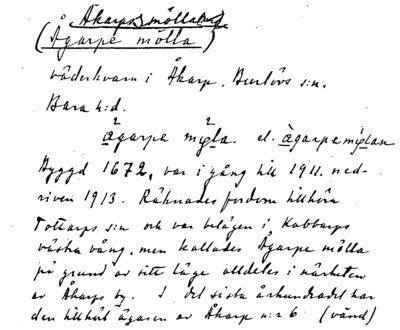 Åkarps mölla
(Ågarpe mölla)
väderkvarn i Åkarp, Burlövs s:n.
Bara h:d.
ágarpa mø̨la. el. àgarpamø̨lan
Byggd 1672, var i gång till 1911. ned-
riven 1913. Räknades fordom tillhöra
Tottarps s:n och var belägen i Kabbarps
västra vång, men kallades Ågarpe mölla
på grund av sitt läge alldeles i närheten
av Åkarps by. I det sista århundradet har
den tillhört ägaren av Åkarp n:r 6 (vänd)